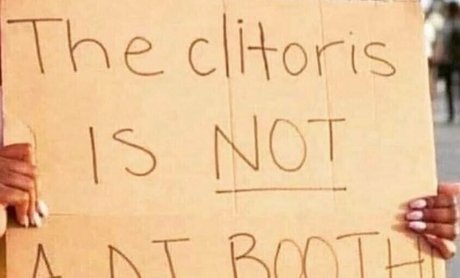 The clitoris
IS NOT
A DJ BOOTH